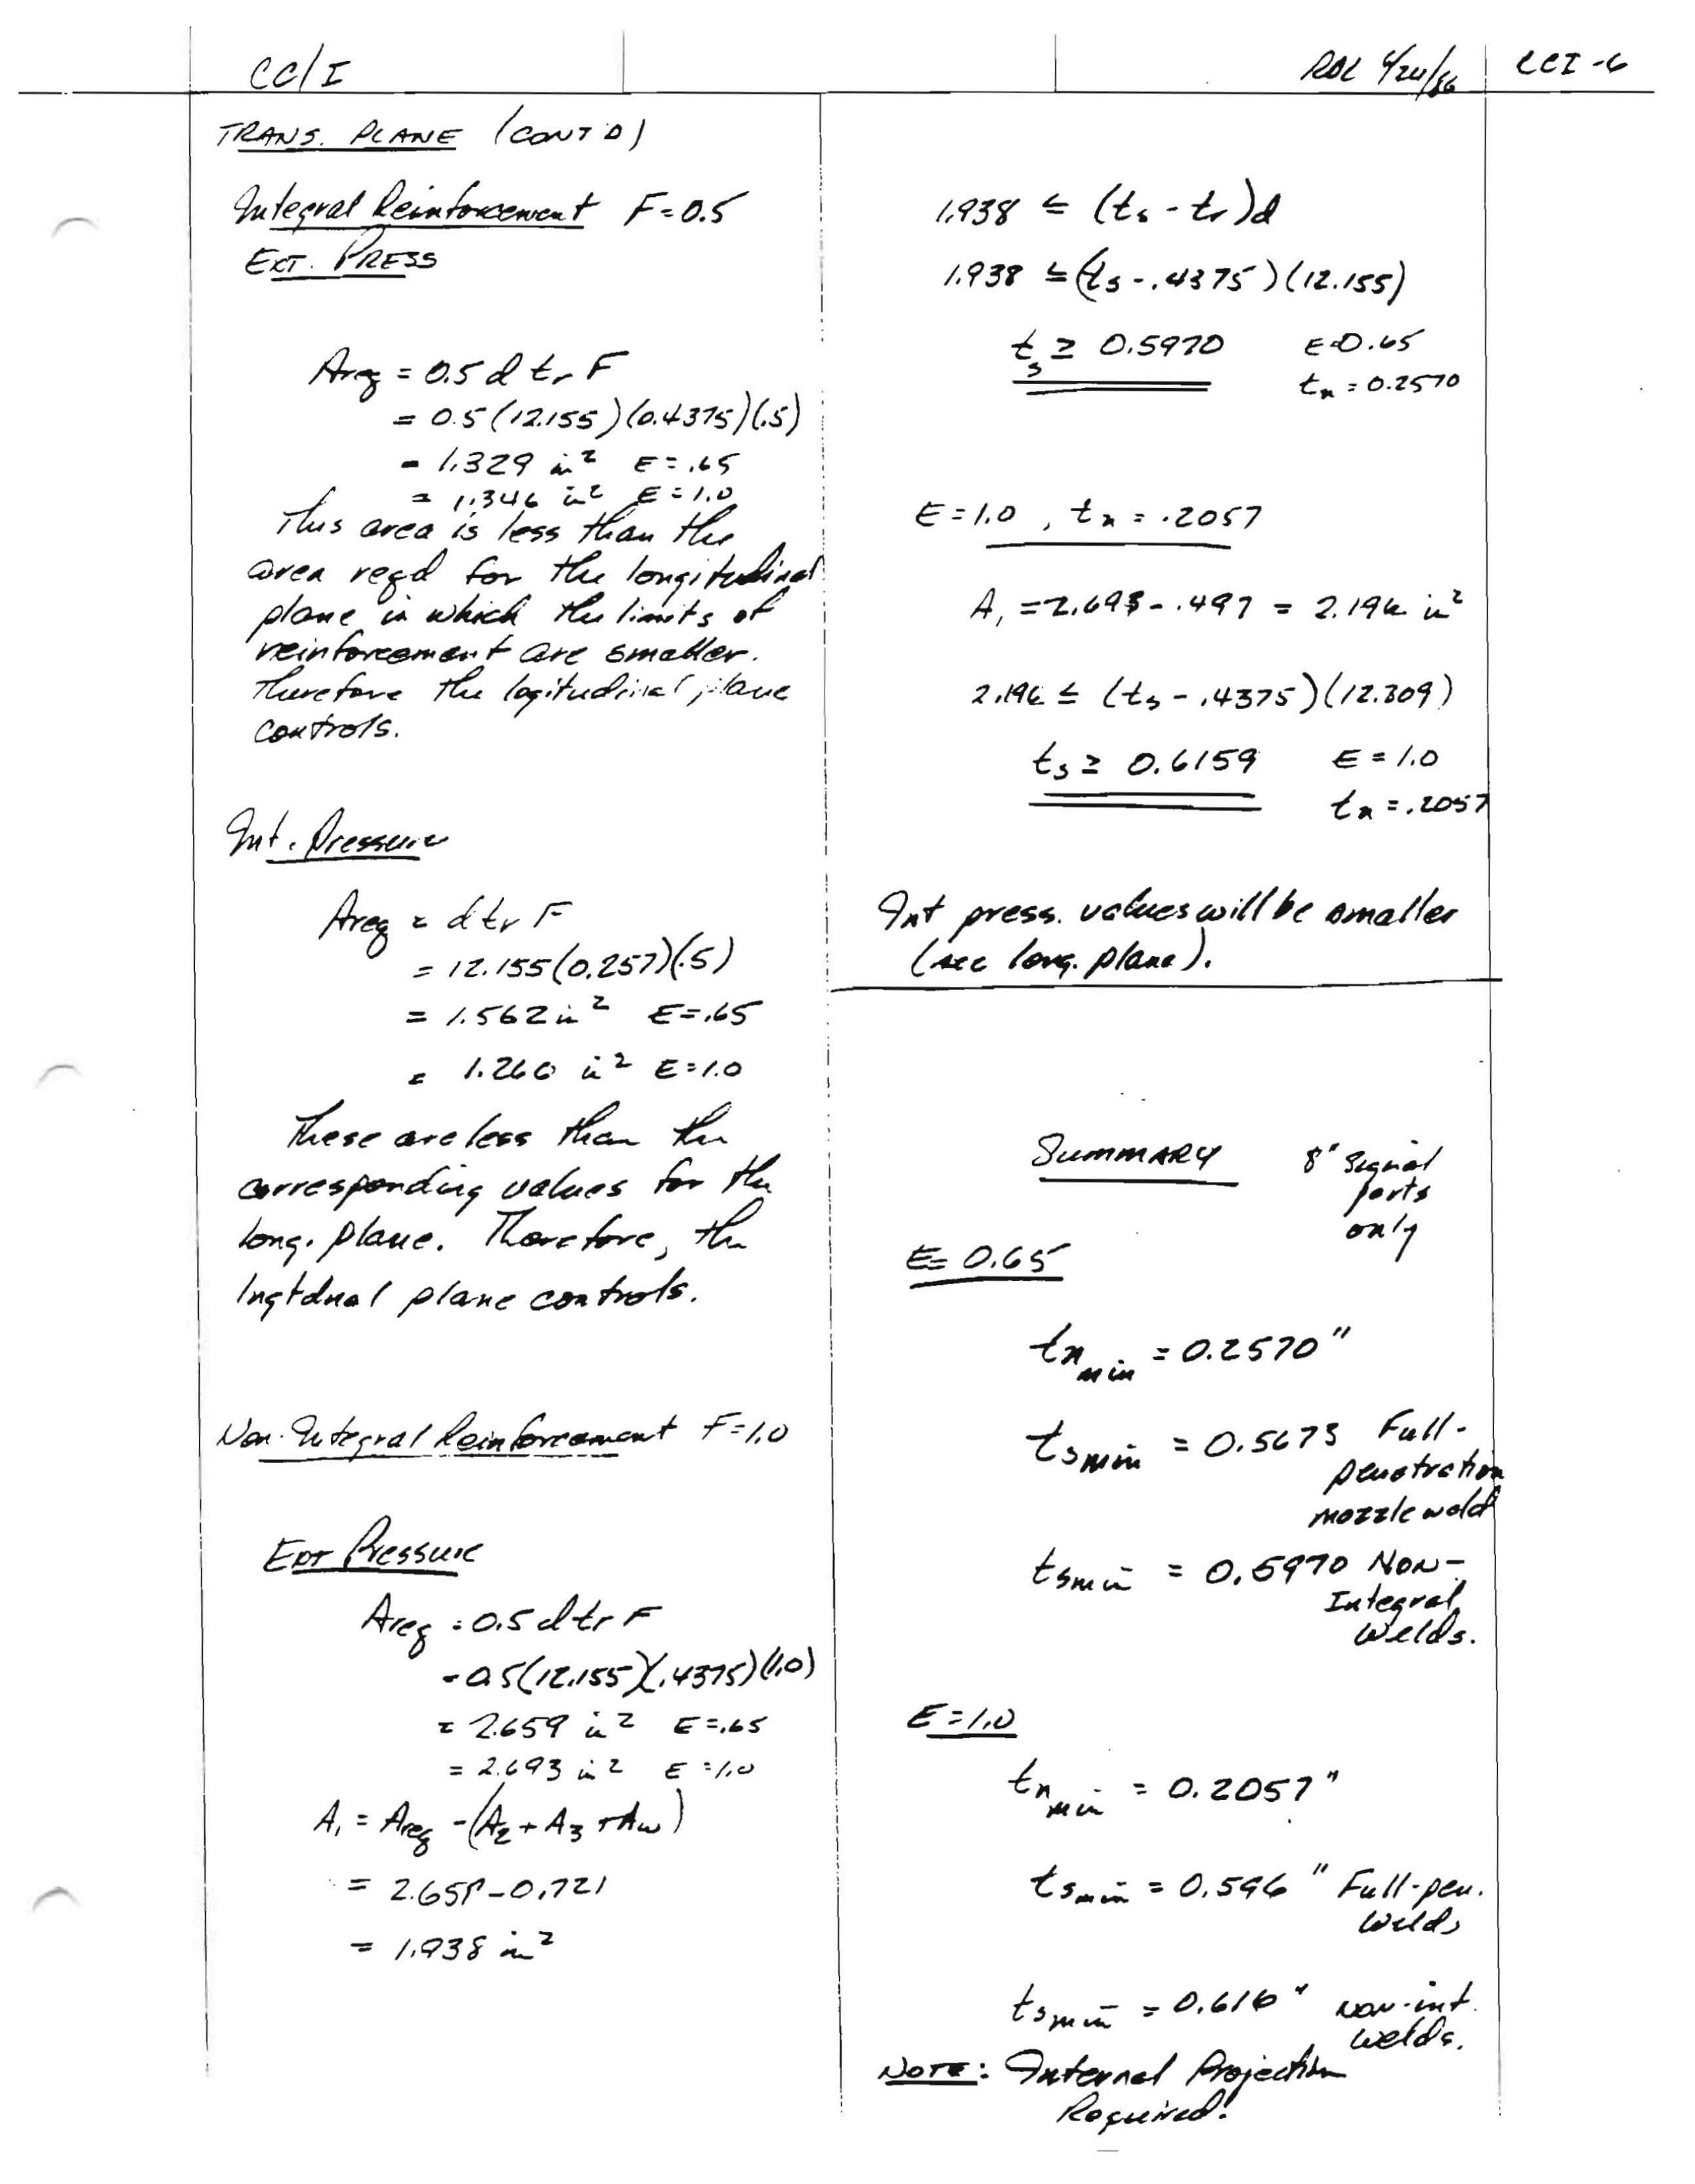 CC/I
RDL 4/24/86
CCI-6
TRANS. PLANE (CONT'D)
Integral Reinforcement F=0.5
EXT. PRESS
Areq = 0.5 d tr F
= 0.5 (12.155)(0.4375)(.5)
= 1.329 in² E=.65
= 1.346 in² E=1.0
This area is less than the
area reqd for the longitudinal
plane in which the limits of
reinforcement are smaller.
Therefore the logitudinal plane
controls.
Int. Pressure
Areq = d tr F
= 12.155(0.257)(.5)
= 1.562 in² E=.65
= 1.266 in² E=1.0
These are less than the
corresponding values for the
long. plane. Therefore, the
lngtdnal plane controls.
Non-Integral Reinforcement F=1.0
Ext Pressure
Areq = 0.5 d tr F
= 0.5(12.155)(.4375)(1.0)
= 2.659 in² E=.65
= 2.693 in² E=1.0
A1 = Areq -(A2 + A3 + Aw)
= 2.659-0.721
= 1.938 in²
1.938 ≤ (ts - tr)d
1.938 ≤ (ts - .4375)(12.155)
ts ≥ 0.5970 E=0.65
tn = 0.2570
E=1.0, tn = .2057
A1 = 2.693-.497 = 2.196 in²
2.196 ≤ (ts - .4375)(12.309)
ts ≥ 0.6159 E=1.0
tn = .2057
Int press. values will be smaller
(see long. plane).
SUMMARY 8" signal
ports
only
E= 0.65
tn min = 0.2570"
ts min = 0.5673 Full-
penetration
nozzle weld
ts min = 0.5970 NON-
Integral
Welds.
E=1.0
tn min = 0.2057"
ts min = 0.596" Full-pen.
welds
ts min = 0.616" non-int.
welds.
NOTE: Internal Projection
Required!